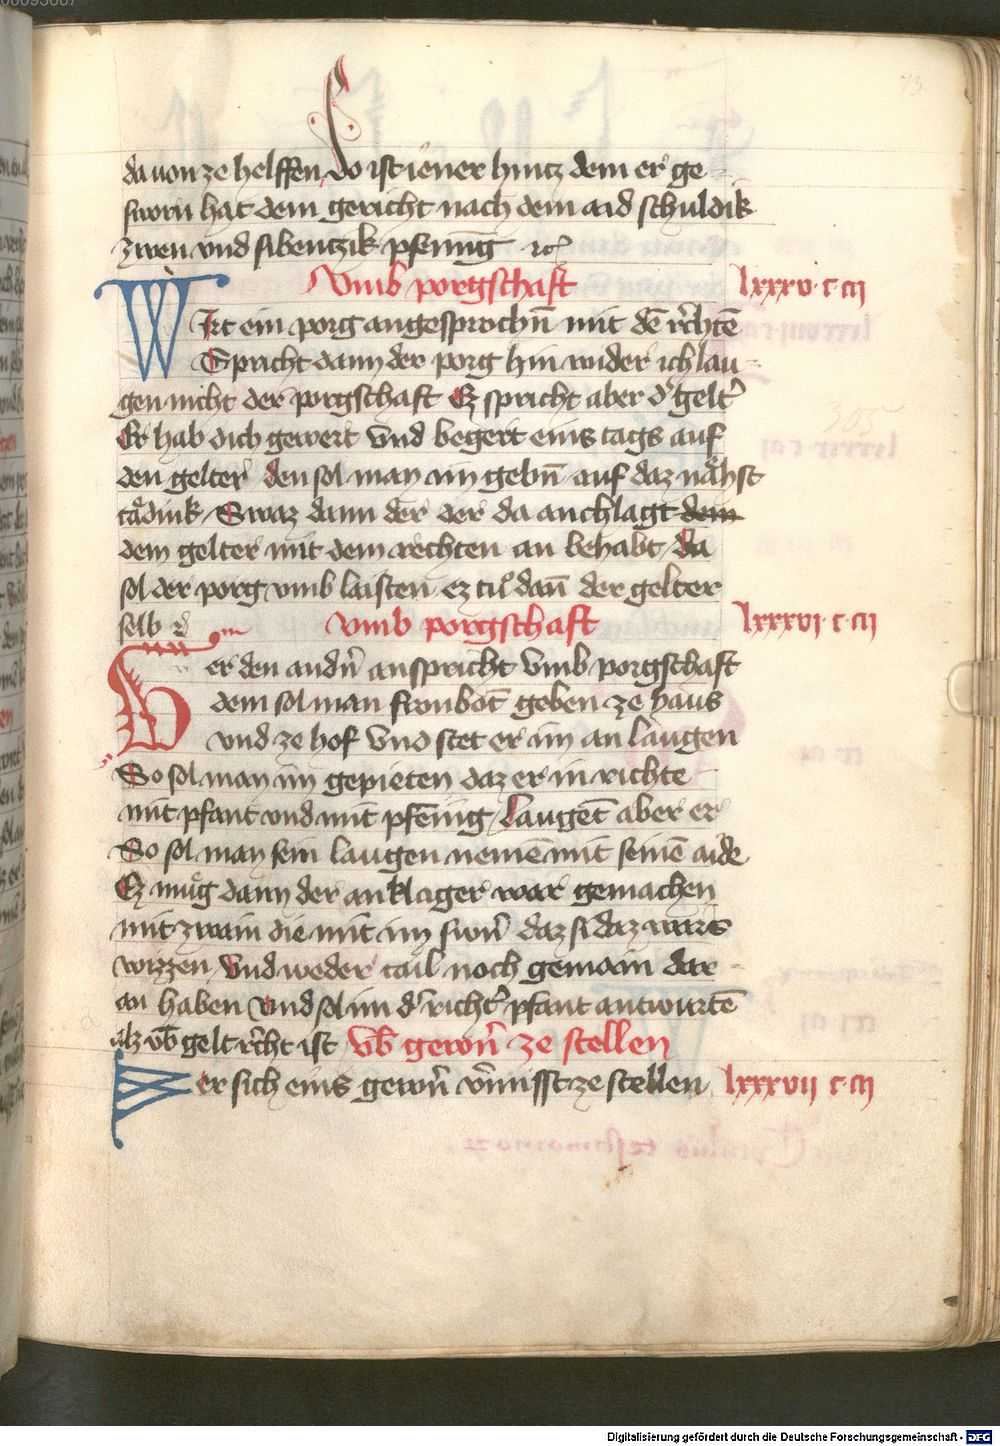 73
da von ze helffen So ist iener hintz dem er ge
sworn hat dem gericht nach dem aid schuldik
zwen vnd sibentzik pfenning ꝛc
Vmb porgschaft lxxxv · c · cij
WIrt ein porg angesprochn̄ mit dē rc̄htē
Spricht dann der porg hin wider ich lau
gen nicht der porgschaft Ez spricht aber d' gelt'
Er hab dich gewert Vnd begert eins tags auf
den gelter den sol man im gebn̄ auf daz nähst
tädink Swaz dann der der da anchlagt dem
dem gelter mit dem rechten an behabt Da
sol der porg vmb laisten ez tu dan̄ der gelter
selb
vmb porgschaft lxxxvi · c · cij
Wer den andn̄ anspricht Vmb porgschaft
dem sol man fronbot geben ze haus
vnd ze hof Vnd stet er im an laugen
So sol man im gepieten daz er in richte
mit pfant vnd mit pfēning Laugēt aber er
So sol man sein laugen nemē mit seinē aide
Ez müg dann der anklager war gemachen
mit zwain die mit im swn̄ daz si daz wars
wizzen Vnd weder tail noch gemain dar
an haben Vnd sol im d' richt' pfant antwurtē
alz vb̄ gelt rc̄ht ist Vb̄ gewn̄ ze stellen
Wer sich eins gewn̄ v'misst ze stellen lxxxvii c · cij
Digitalisierung gefördert durch die Deutsche Forschungsgemeinschaft - DFG